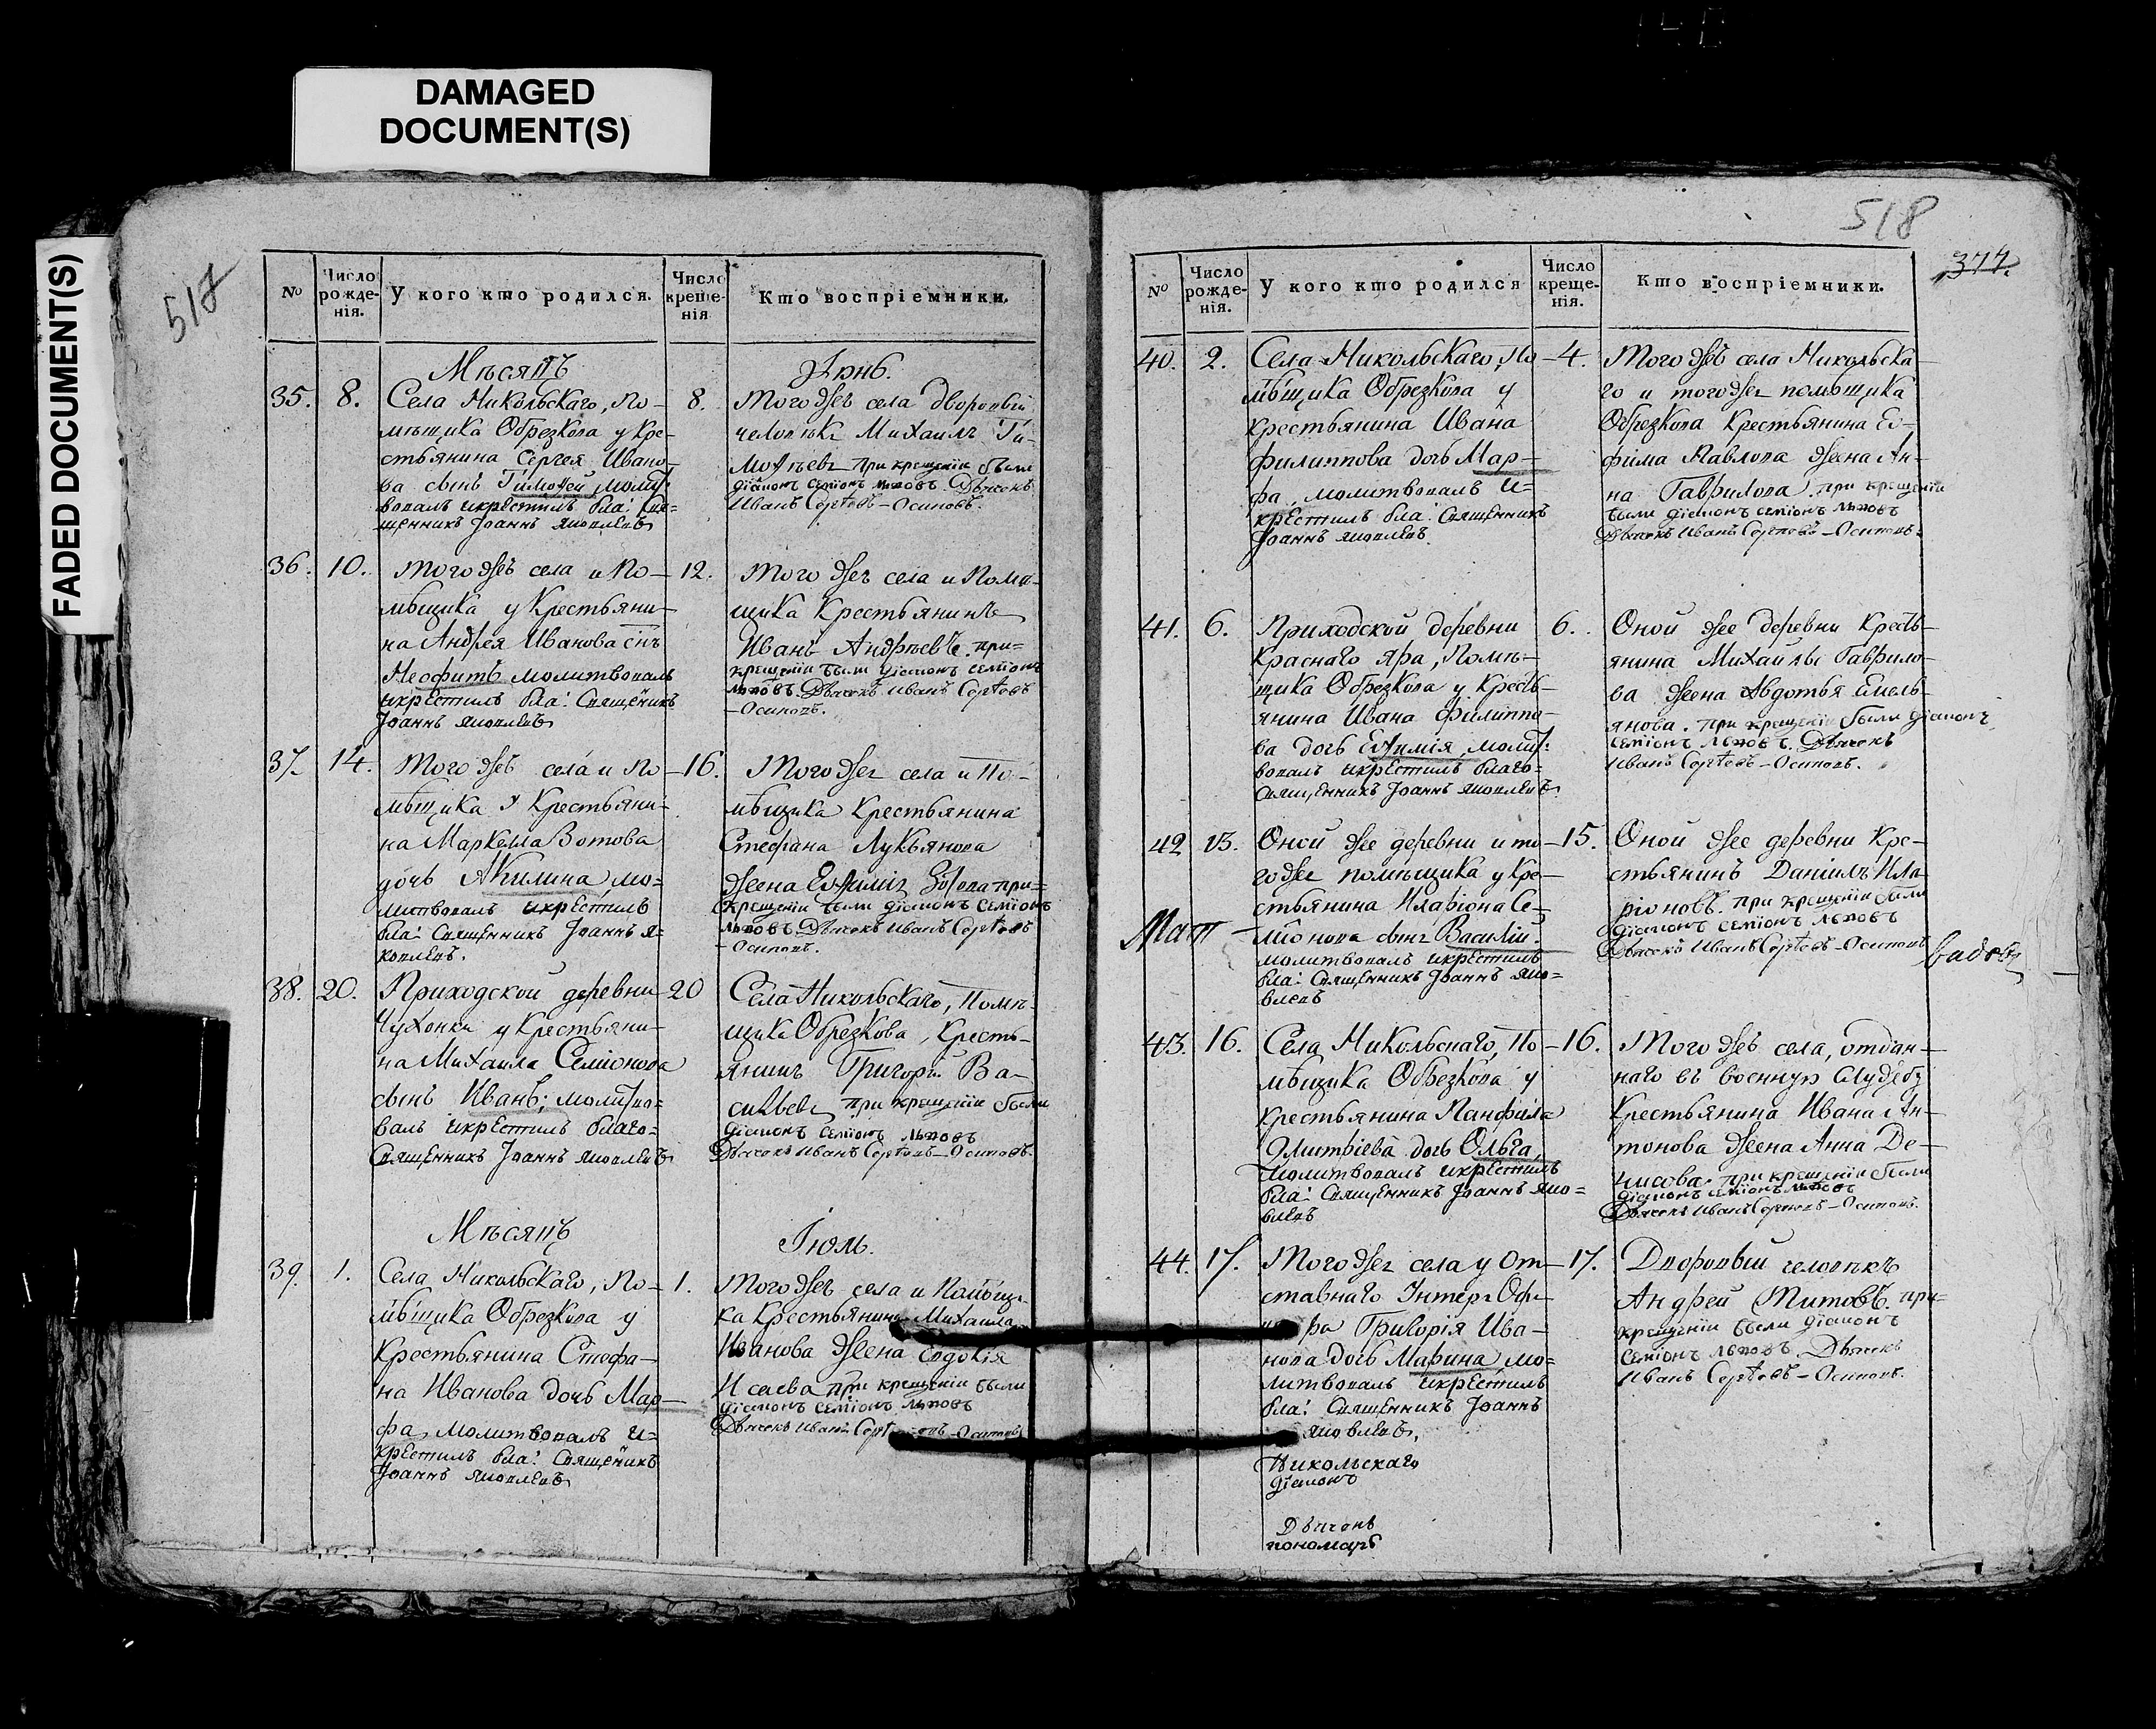 DAMAGED
DOCUMENT(S)
FADED DOCUMENT(S)
517
№
Число рожде-нія.
У кого кто родился.
Число креще-нія
Кто воспріемники.
Мѣсяцъ
Іюнь.
35. 8.
Села Никольскаго, по-
мѣщика Обрезкова у кре-
стьянина Сергея Ивано-
ва сынъ Тимоѳей, молит-
вовалъ икрестилъ бла: Свя-
щенникъ Іоаннъ Яковлевъ
8.
Того жъ села дворовый
человѣкъ Михаилъ Ти-
моѳѣевъ при крещеніи были
діаконъ Семіонъ Львовъ. Дьячекъ
Иванъ Сергѣевъ - Осиповъ.
36. 10.
Того жъ села и По-
мѣщика у Крестьяни-
на Андрея Иванова снъ
Неофитъ молитвовалъ
икрестилъ бла: Священикъ
Іоаннъ Яковлевъ
12.
Того жъ села и Помѣ-
щика Крестьянинъ
Иванъ Андрѣевъ. при-
крещеніи были діаконъ Семіонъ
Львовъ. Дьячекъ Иванъ Сергѣевъ
- Осиповъ.
37. 14.
Того жъ села и По-
мѣщика у Крестьяни-
на Маркелла Зотова
дочь Акилина мо=
литвовалъ икрестилъ
бла: Священникъ Іоаннъ Я-
ковлевъ.
16.
Того жъ села и По-
мѣщика Крестьянина
Стефана Лукьянова
жена Евѳимія Зотова при=
крещеніи были діаконъ Семіонъ
Львовъ. Дьячекъ Иванъ Сергѣевъ
- Осиповъ.
38. 20.
Приходской деревни
Чухонки у Крестьяни-
на Михаила Семіонова
сынъ Иванъ; молитво=
валъ икрестилъ благо=
Священникъ Іоаннъ Яковлевъ
20
Села Никольскаго, Помѣ-
щика Обрезкова, Кресть-
янинъ Григорій Ва-
сильевъ при крещеніи были
діаконъ Семіонъ Львовъ
Дьячекъ Иванъ Сергѣевъ - Осиповъ.
Мѣсяцъ
Іюль.
39. 1.
Села Никольскаго, По-
мѣщика Обрезкова у
Крестьянина Стефа-
на Иванова дочь Мар-
фа, молитвовалъ и=
крестилъ бла: Священикъ
Іоаннъ Яковлевъ
1.
Того жъ села и Помѣщи-
ка Крестьянина Михаила
Иванова жена Евдокія
Исаева при крещеніи были
діаконъ Семіонъ Львовъ
Дьячекъ Иванъ - Осиповъ
518
377.
№
Число рожде-нія.
У кого кто родился
Число креще-нія.
Кто воспріемники.
40. 2.
Села Никольскаго, По-
мѣщика Обрезкова у
крестьянина Ивана
Филиппова дочь Мар-
фа, молитвовалъ и=
крестилъ бла: Священникъ
Іоаннъ Яковлевъ.
4.
Того жъ села Никольска-
го и того жъ помѣщика
Обрезкова Крестьянина Ев-
фима Павлова жена Ан-
на Гаврилова. при крещеніи
были діаконъ Семіонъ Львовъ
Дьячекъ Иванъ Сергѣевъ - Осиповъ.
41. 6.
Приходской деревни
Краснаго Яра, Помѣ-
щика Обрезкова у Кресть-
янина Ивана Филиппо-
ва дочь Евѳимія, молит:
вовалъ икрестилъ благо=
Священникъ Іоаннъ Яковлевъ.
6.
Оной же деревни Кресть-
янина Михайлы Гаврило-
ва жена Авдотья Емель-
янова. при крещеніи были діаконъ
Семіонъ Львовъ. Дьячекъ
Иванъ Сергѣевъ - Осиповъ.
42 13.
Оной же деревни и то-
гожъ помѣщика у Кре-
стьянина Иларіона Се-
міонова сынъ Василій.
молитвовалъ икрестилъ
бла: Священникъ Іоаннъ Яко=
влевъ
15.
Оной же деревни Кре-
стьянинъ Даніилъ Ила-
ріоновъ. при крещеніи были
діаконъ Семіонъ Львовъ
Дьячекъ Иванъ Сергѣевъ - Осиповъ
43. 16.
Села Никольскаго, По-
мѣщика Обрезкова у
крестьянина Панфила
Дмитріева дочь Ольга,
молитвовалъ икрестилъ
бла: Священникъ Іоаннъ Яко=
влевъ
16.
Того жъ села, отдан-
наго въ военную службу
Крестьянина Ивана Ан-
тонова жена Анна Де-
нисова. при крещеніи были
діаконъ Семіонъ Львовъ
Дьячекъ Иванъ Сергѣевъ - Осиповъ.
44. 17.
Того жъ села у От-
ставнаго Унтеръ Офи-
ра Григорія Ива-
нова дочь Марина мо=
литвовалъ икрестилъ
бла: Священникъ Іоаннъ
Яковлевъ,
Никольскаго
діаконъ
Дьячекъ
пономарь
17.
Дворовый человѣкъ
Андрей Титовъ. при=
крещеніи были діаконъ
Семіонъ Львовъ. Дьячекъ
Иванъ Сергѣевъ - Осиповъ.